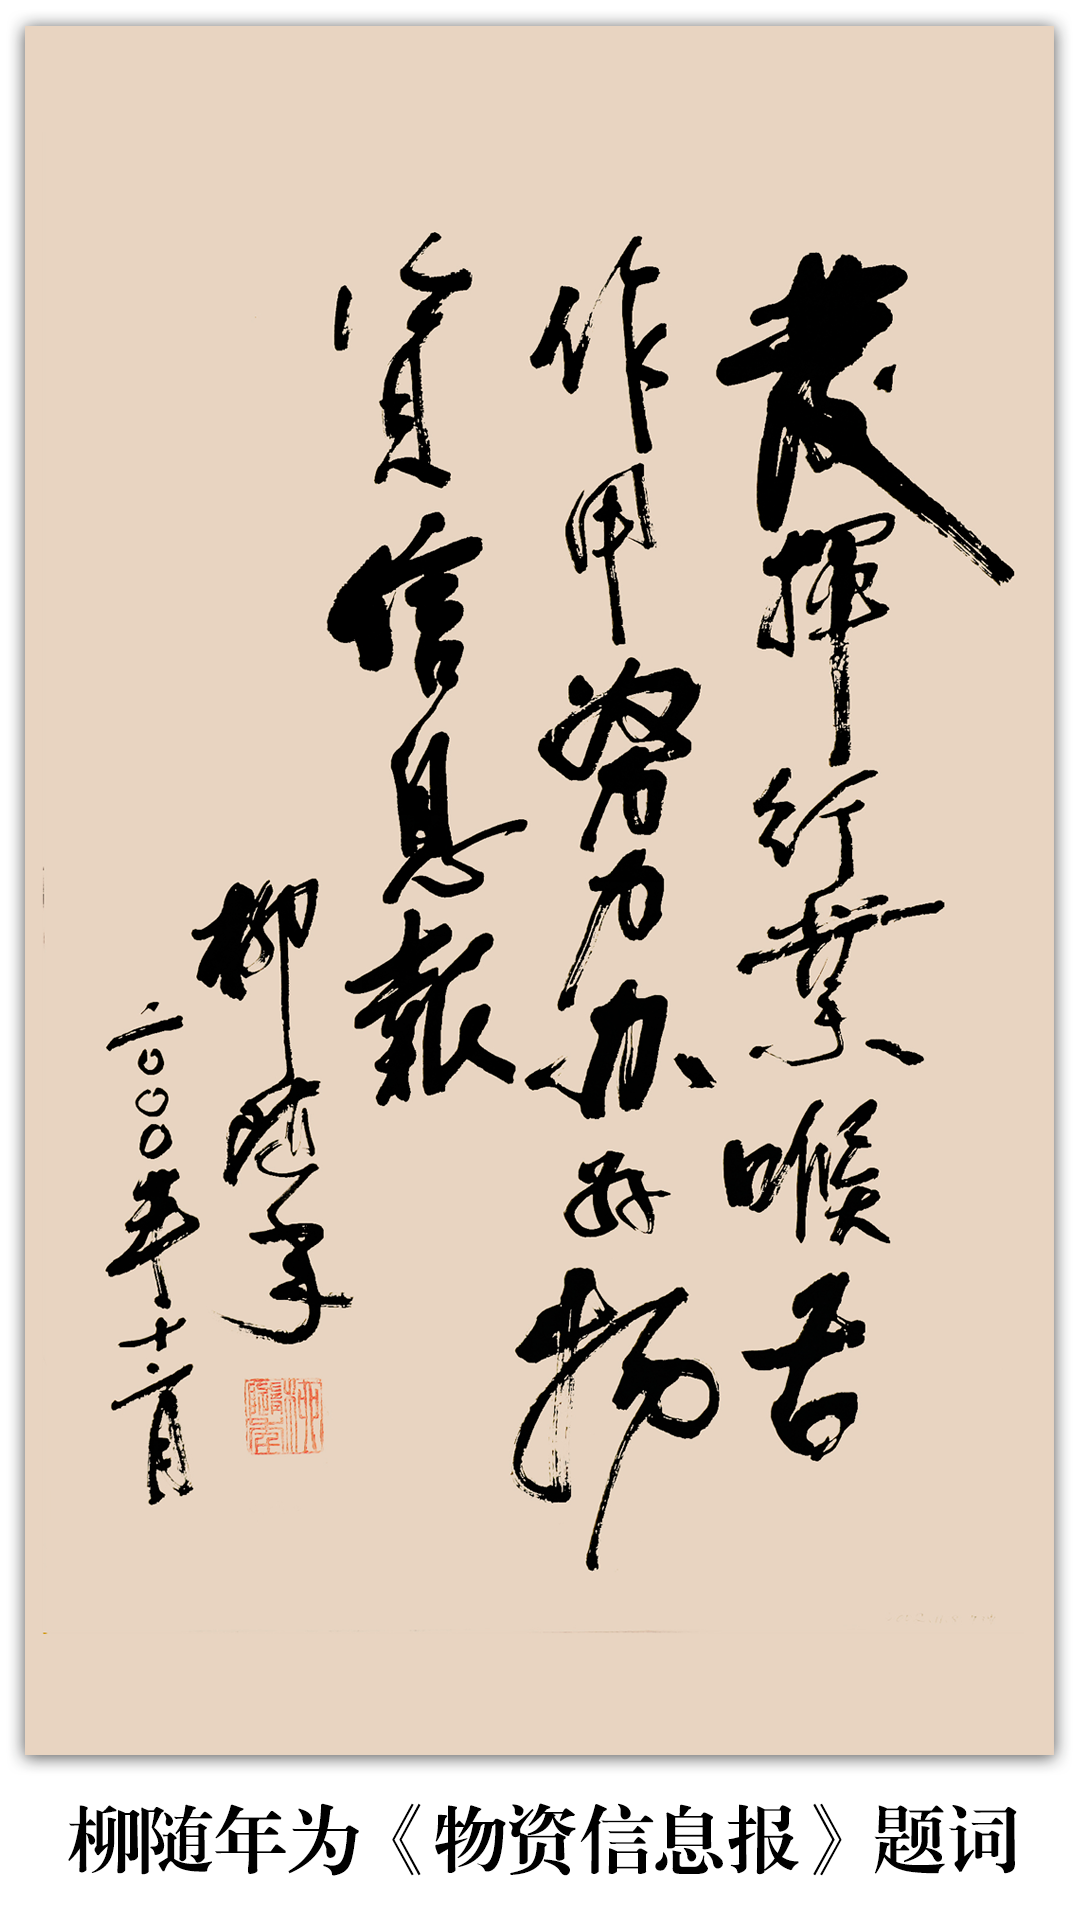 發揮行業喉舌
作用努力办好物
資信息報
柳随年
二〇〇〇年十二月
柳随年为《物资信息报》题词